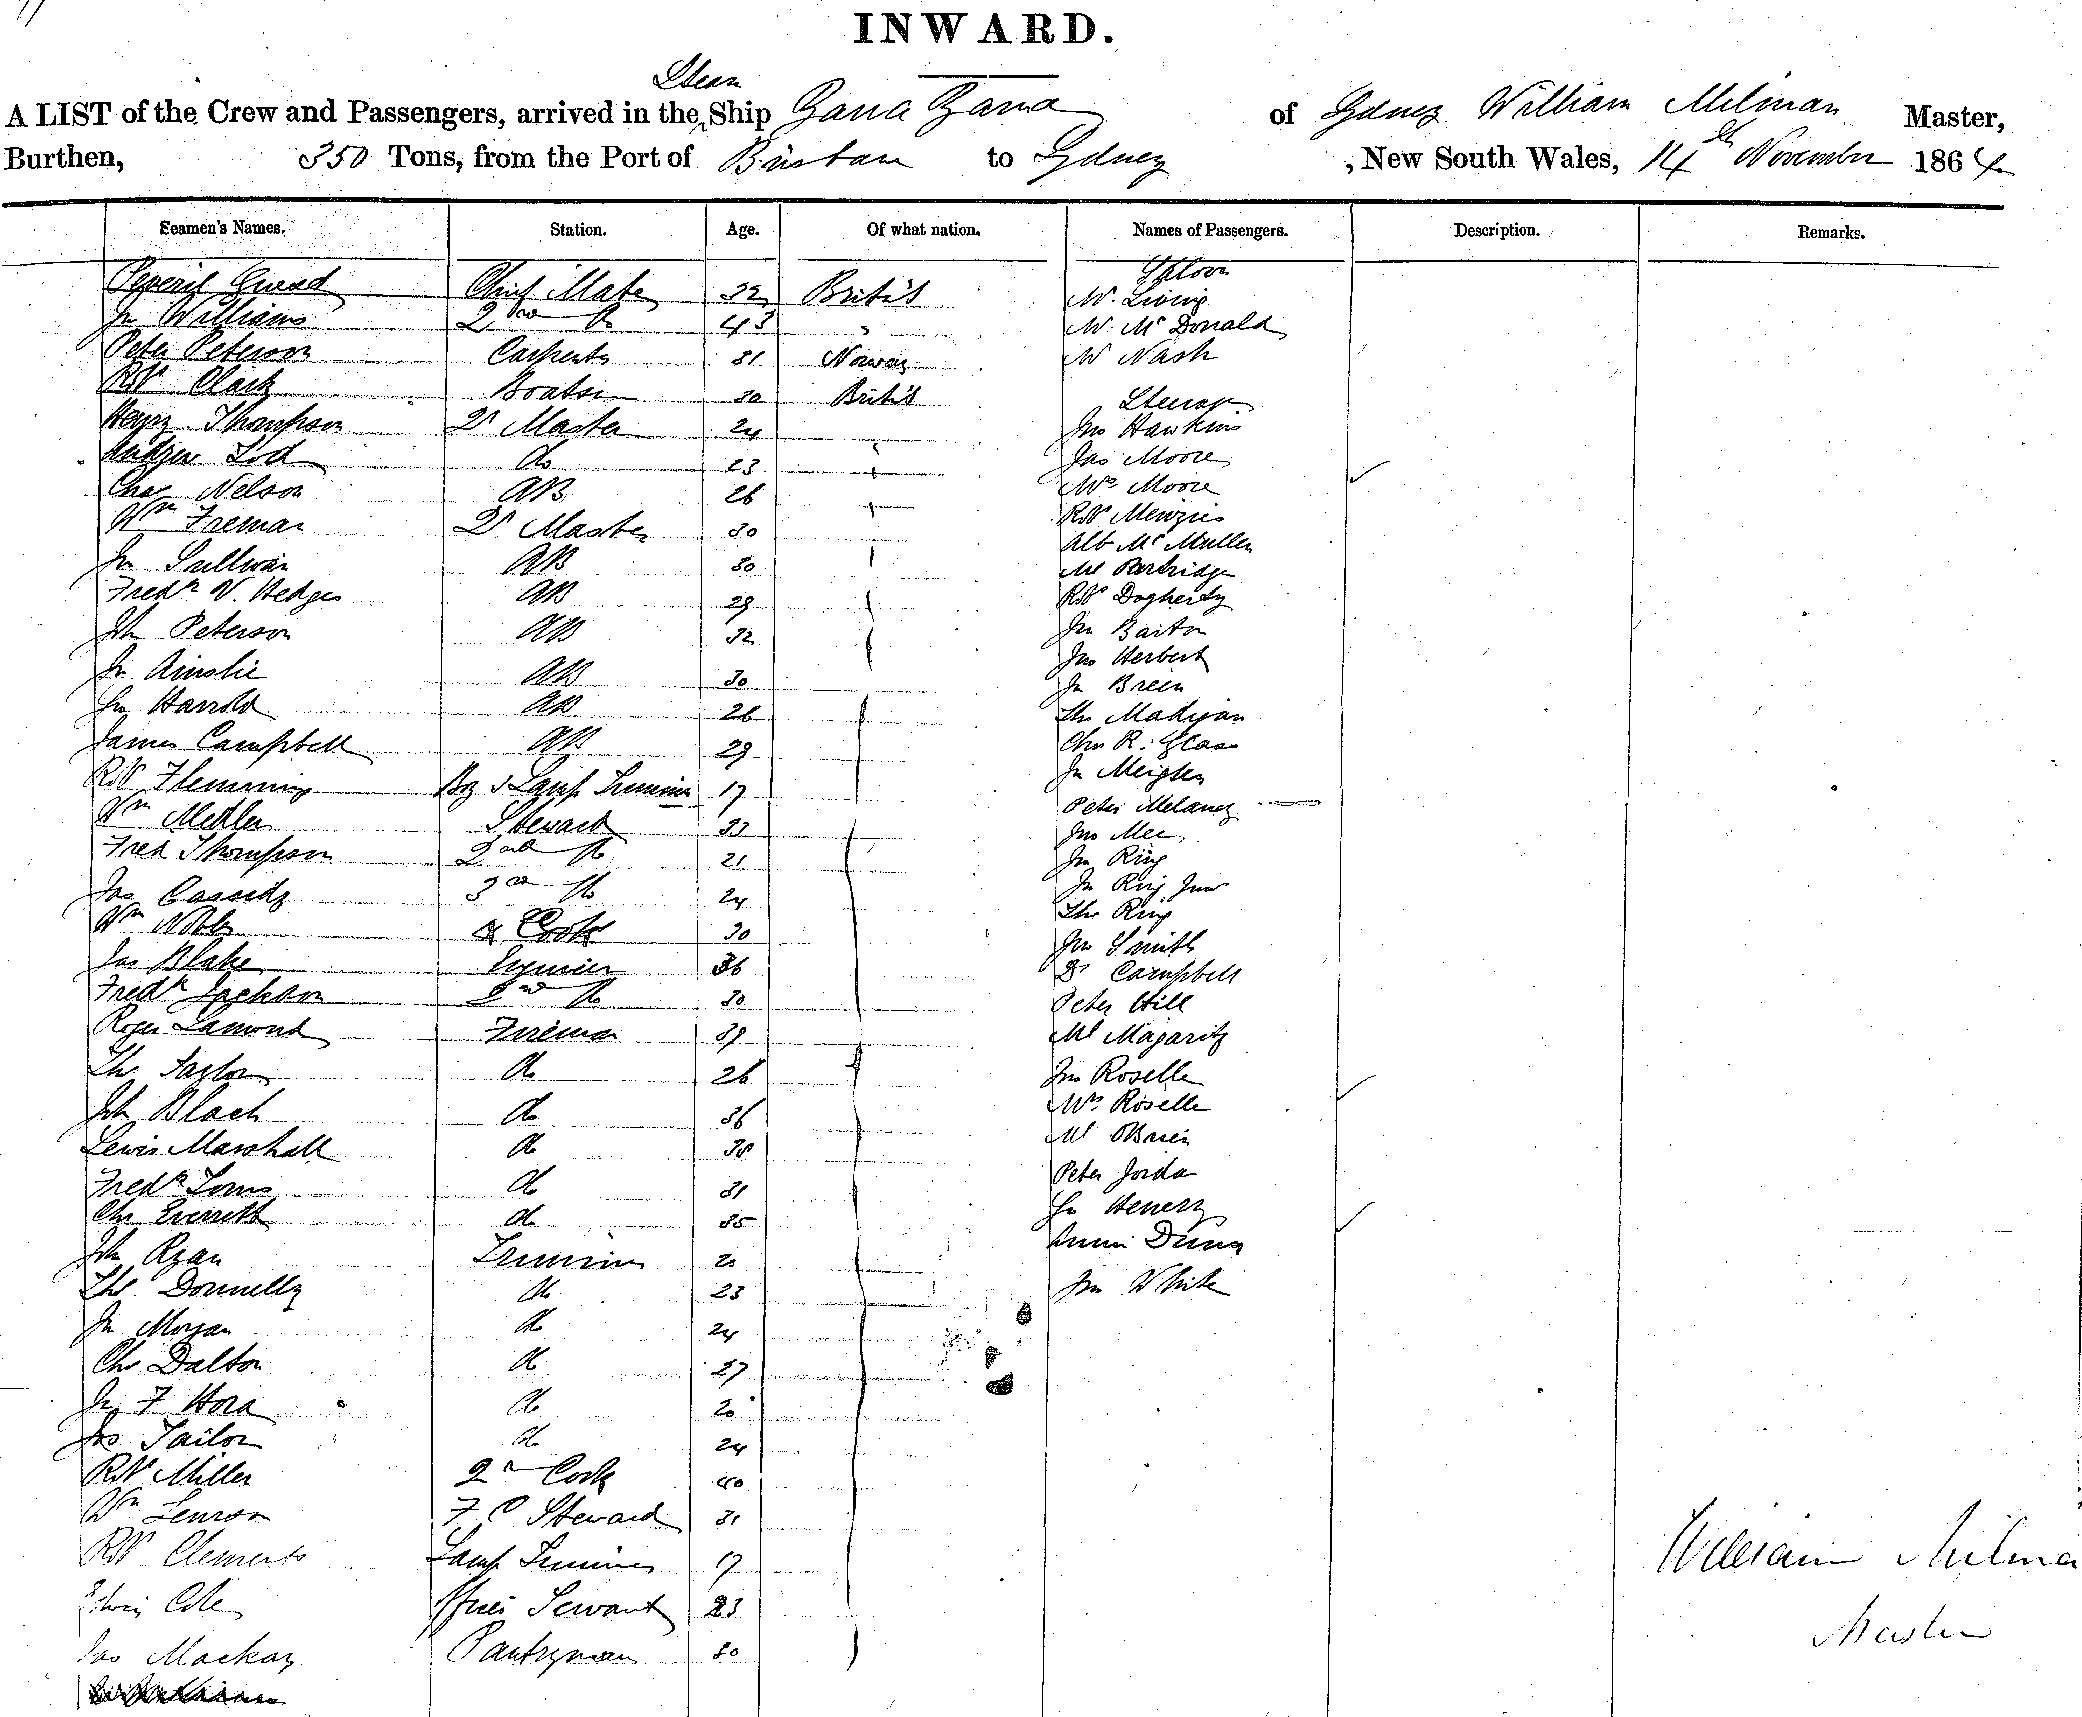 INWARD.
Steam
A LIST of the Crew and Passengers, arrived in the Ship Yarra Yarra of Sydney William Milman Master,
Burthen, 350 Tons, from the Port of Brisbane to Sydney , New South Wales, 14th November 1864
Seamen's Names. Station. Age. Of what nation. Names of Passengers. Description. Remarks.
Saloon
Chief Mate 32 British Mr.
Jn Williams 2nd Do 43 " Mr. McDonald
Peter Peterson Carpenter 31 Norway Mr Nash
Robt Clark Boatsn 30 British Steerage
Henry Thompson Qr Master 24 Jno Hawkins
Andrew Do 23 Jas Moore
Chas Nelson AB 26 Mrs Moore
Wm Freeman Qr Master 30 Robt Menzies
Jn Sullivan AB 30 Alb McMullen
Fredk W. Hedges AB 29 Ml Partridge
Joh Peterson AB 32 Robt Dogherty
Jn Ainslie AB 30 Jn Barton
Jn Harrold AB 26 Jas Herbert
James Campbell AB 29 Jn Breen
Robt Flemming Boy & Lamp Trimmer 17 Tho Madigan
Wm Medler Steward 33 Chs R. Glass
Fred Thompson 2nd Do 21 Jn
Jas Cassidy 3rd Do 24 Peter
Wm Cook 30 Jno Mee
Jas Blake Engineer 36 Jn Ring
Fredk Jackson 2nd Do 30 Jn Ring Junr
Roger Lamont Fireman 39 Tho Ring
Tho Taylor Do 26 Jno Smith
Joh Black Do 36 Campbell
Lewis Marshall Do 30 Peter Hill
Fredk Do 31 Ml Magarity
Chs Everett Do 35 Jno Roselle
Joh Ryan Trimmer 20 Mrs Roselle
Tho Donnelly Do 23 Ml OBrien
Jn Morgan Do 24 Peter Jordan
Chs Dalton Do 27 Jn Henery
Jn F Do 20 Annie Dunn
Jas Tailor Do 24 Jno White
Robt Miller 2nd Cook 40
Wm F C Steward 31
Robt Clements Lamp Trimmer 17
Edwin Cole Servant 23
Jas Mackay Pantryman 30
William Milman
Master